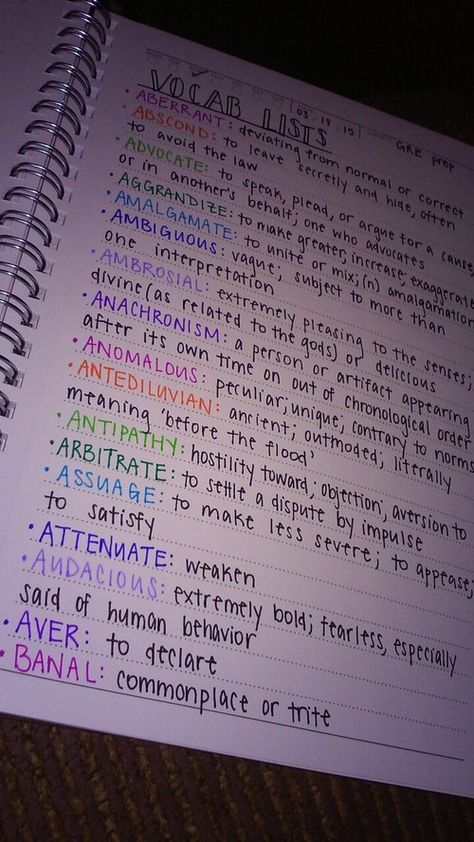 VOCAB LISTS
03 · 19 · 15
GRE prep
• ABERRANT: deviating from normal or correct
• ABSCOND: to leave secretly and hide, often
to avoid the law
• ADVOCATE: to speak, plead, or argue for a cause
or in another's behalf; one who advocates
• AGGRANDIZE: to make greater, increase, exaggerate
• AMALGAMATE: to unite or mix; (n) amalgamation
• AMBIGUOUS: vague; subject to more than
one interpretation
• AMBROSIAL: extremely pleasing to the senses;
divine (as related to the gods) or delicious
• ANACHRONISM: a person or artifact appearing
after its own time on out of chronological order
• ANOMALOUS: peculiar; unique; contrary to norm
• ANTEDILUVIAN: ancient; outmoded; literally
meaning 'before the flood'
• ANTIPATHY: hostility toward; objection, aversion to
• ARBITRATE: to settle a dispute by impulse
• ASSUAGE: to make less severe; to appease,
to satisfy
• ATTENUATE: weaken
• AUDACIOUS: extremely bold; fearless, especially
said of human behavior
• AVER: to declare
• BANAL: commonplace or trite